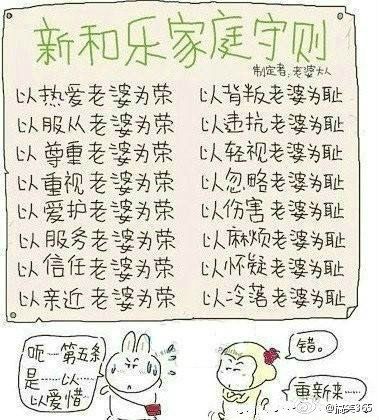 新和乐家庭守则
制定者:老婆大人
以热爱老婆为荣 以背叛老婆为耻
以服从老婆为荣 以违抗老婆为耻
以尊重老婆为荣 以轻视老婆为耻
以重视老婆为荣 以忽略老婆为耻
以爱护老婆为荣 以伤害老婆为耻
以服务老婆为荣 以麻烦老婆为耻
以信任老婆为荣 以怀疑老婆为耻
以亲近老婆为荣 以冷落老婆为耻
呃…第五条
是……以……
以爱惜…
错。
重新来……
@搞笑365